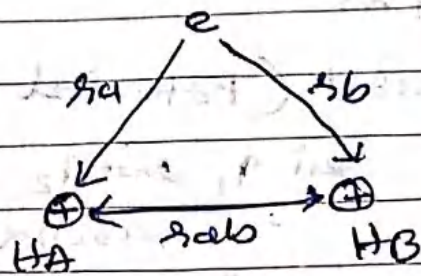 e
ra rb
⊕ rab ⊕
HA HB